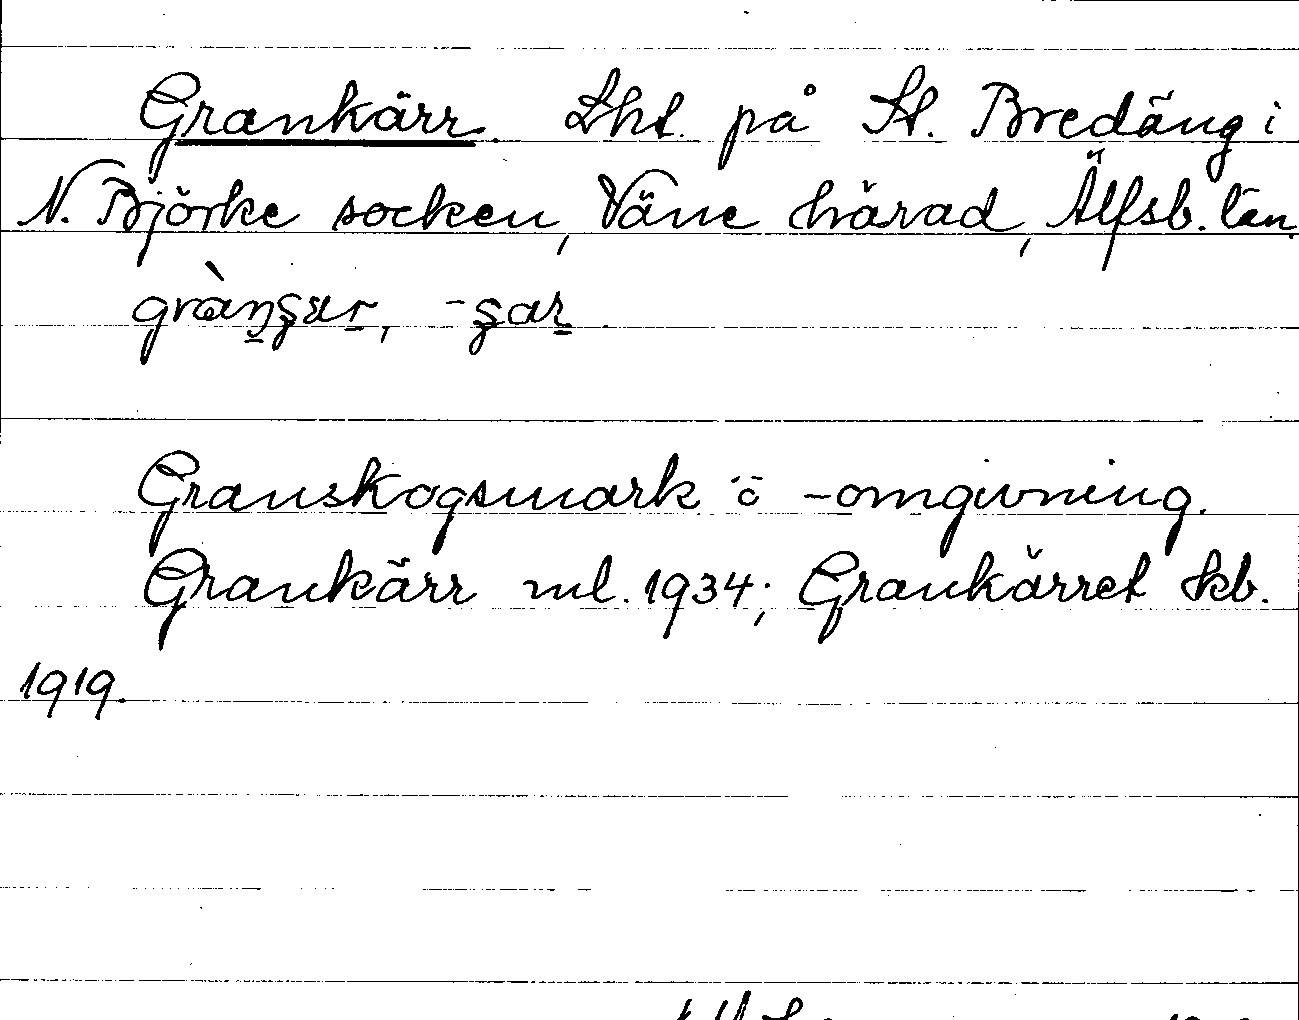 Grankärr. Lht. på St. Bredäng i
N. Björke socken, Väne härad, Älfsb. län.
Granskogsmark o -omgivning.
Grankärr ml. 1934; Grankärret skb.
1919.